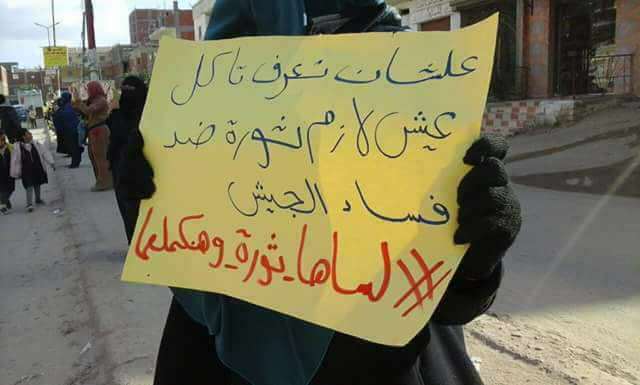 علشان تعرف تاكل
عيش لازم ثورة ضد
فساد الجيش
#لساها_ثورة_وهنكملها